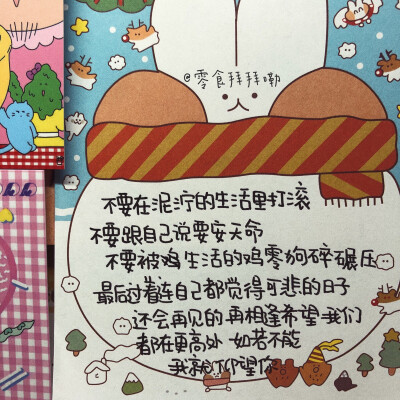 @零食拜拜嘞
不要在泥泞的生活里打滚
不要跟自己说要安天命
不要被鸡生活的鸡零狗碎碾压
最后过着连自己都觉得可悲的日子
还会再见的再相逢希望我们
都在更高处 如若不能
我就仰望你